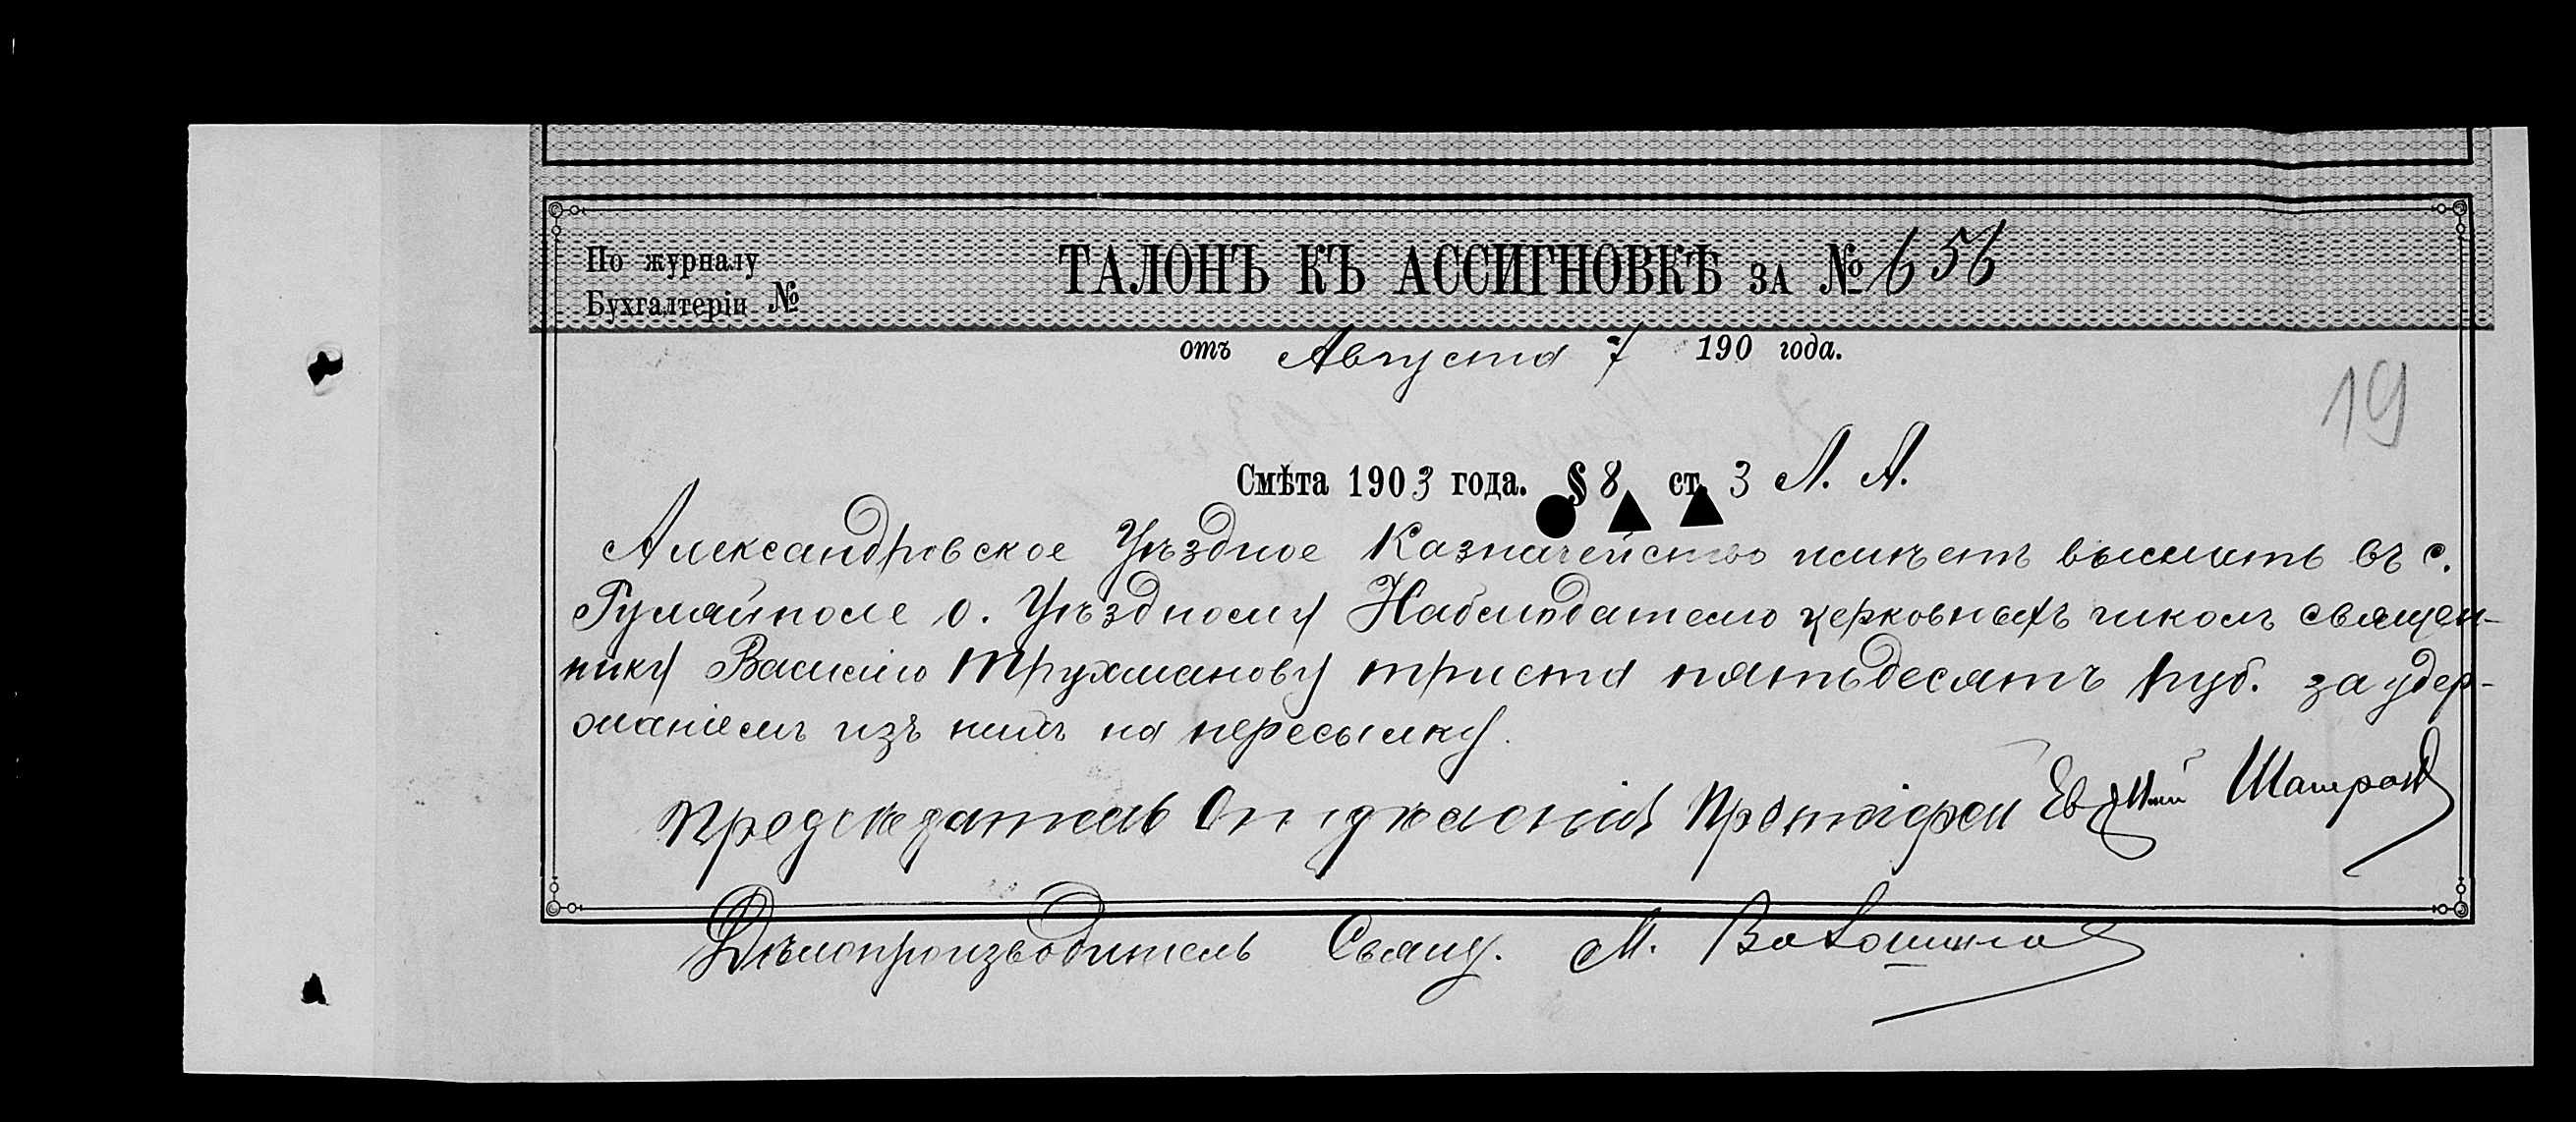 ТАЛОНЪ КЪ АССИГНОВКѢ ЗА № 656
По журналу
Бухгалтеріи №
отъ Августа 7 190 года.
19
Смѣта 1903 года. § 8 ст. 3 Л. А.
Александровское Уѣздное Казначейство имѣетъ выслать въ с.
Гуляйполе о. Уѣздному Наблюдателю церковныхъ школъ священ-
нику Василію Трухманову триста пятьдесятъ руб. за удер-
жаніемъ изъ нихъ на пересылку.
Предсѣдатель Отдѣленія Протоіерей Евѳимій
Дѣлопроизводитель Свящ. М.